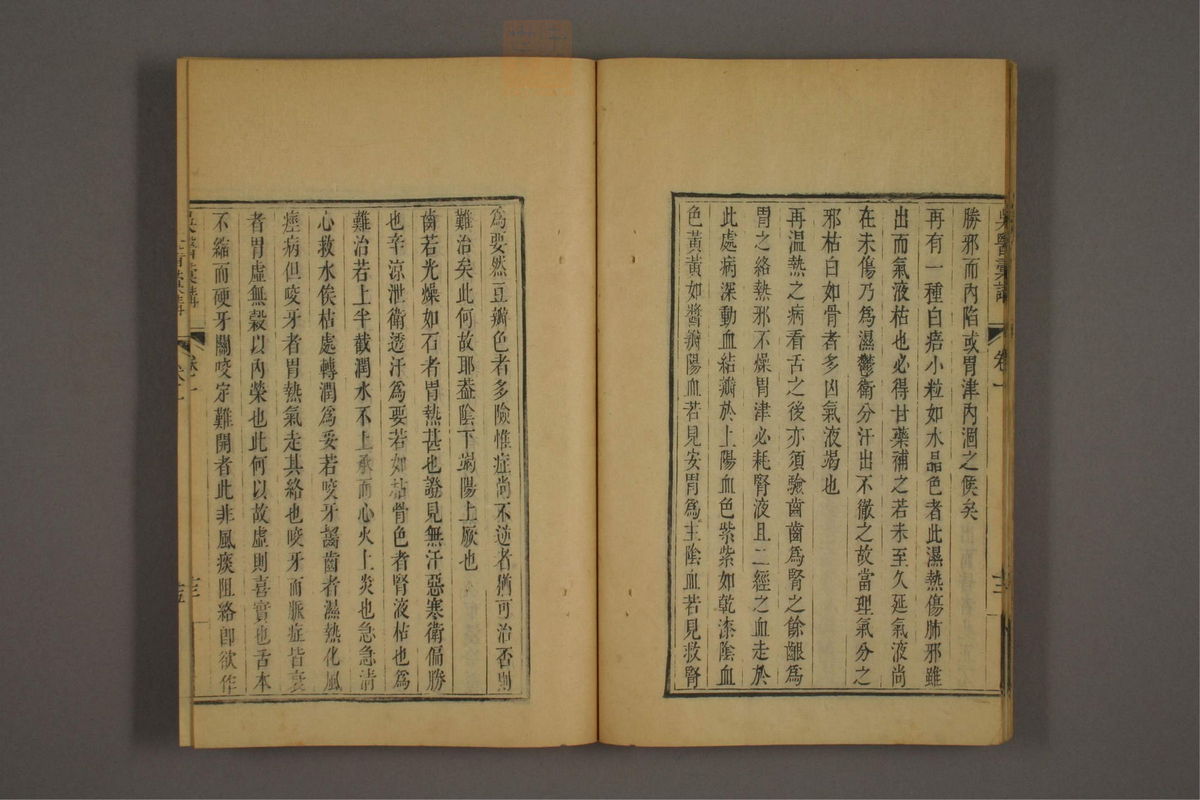 吳醫彙講 卷一 十三
勝邪而內陷或胃津內涸之候矣
再有一種白㾦小粒如水晶色者此濕熱傷肺邪雖
出而氣液枯也必得甘藥補之若未至久延氣液尚
在未傷乃爲濕鬱衛分汗出不徹之故當理氣分之
邪枯白如骨者多凶氣液竭也
再溫熱之病看舌之後亦須驗齒齒爲腎之餘齦爲
胃之絡熱邪不燥胃津必耗腎液且二經之血走於
此處病深動血結瓣於上陽血色紫紫如乾漆陰血
色黃黃如醬瓣陽血若見安胃爲主陰血若見救腎
爲要然豆瓣色者多險惟症尚不逆者猶可治否則
難治矣此何故耶葢陰下竭陽上厥也
齒若光燥如石者胃熱甚也證見無汗惡寒衛偏勝
也辛涼泄衛透汗爲要若如枯骨色者腎液枯也爲
難治若上半截潤水不上承而心火上炎也急急清
心救水俟枯處轉潤爲妥若咬牙齧齒者濕熱化風
痙病但咬牙者胃熱氣走其絡也咬牙而脈症皆衰
者胃虛無穀以內榮也此何以故虛則喜實也舌本
不縮而硬牙關咬定難開者此非風痰阻絡卽欲作
吳醫彙講 卷一 十三